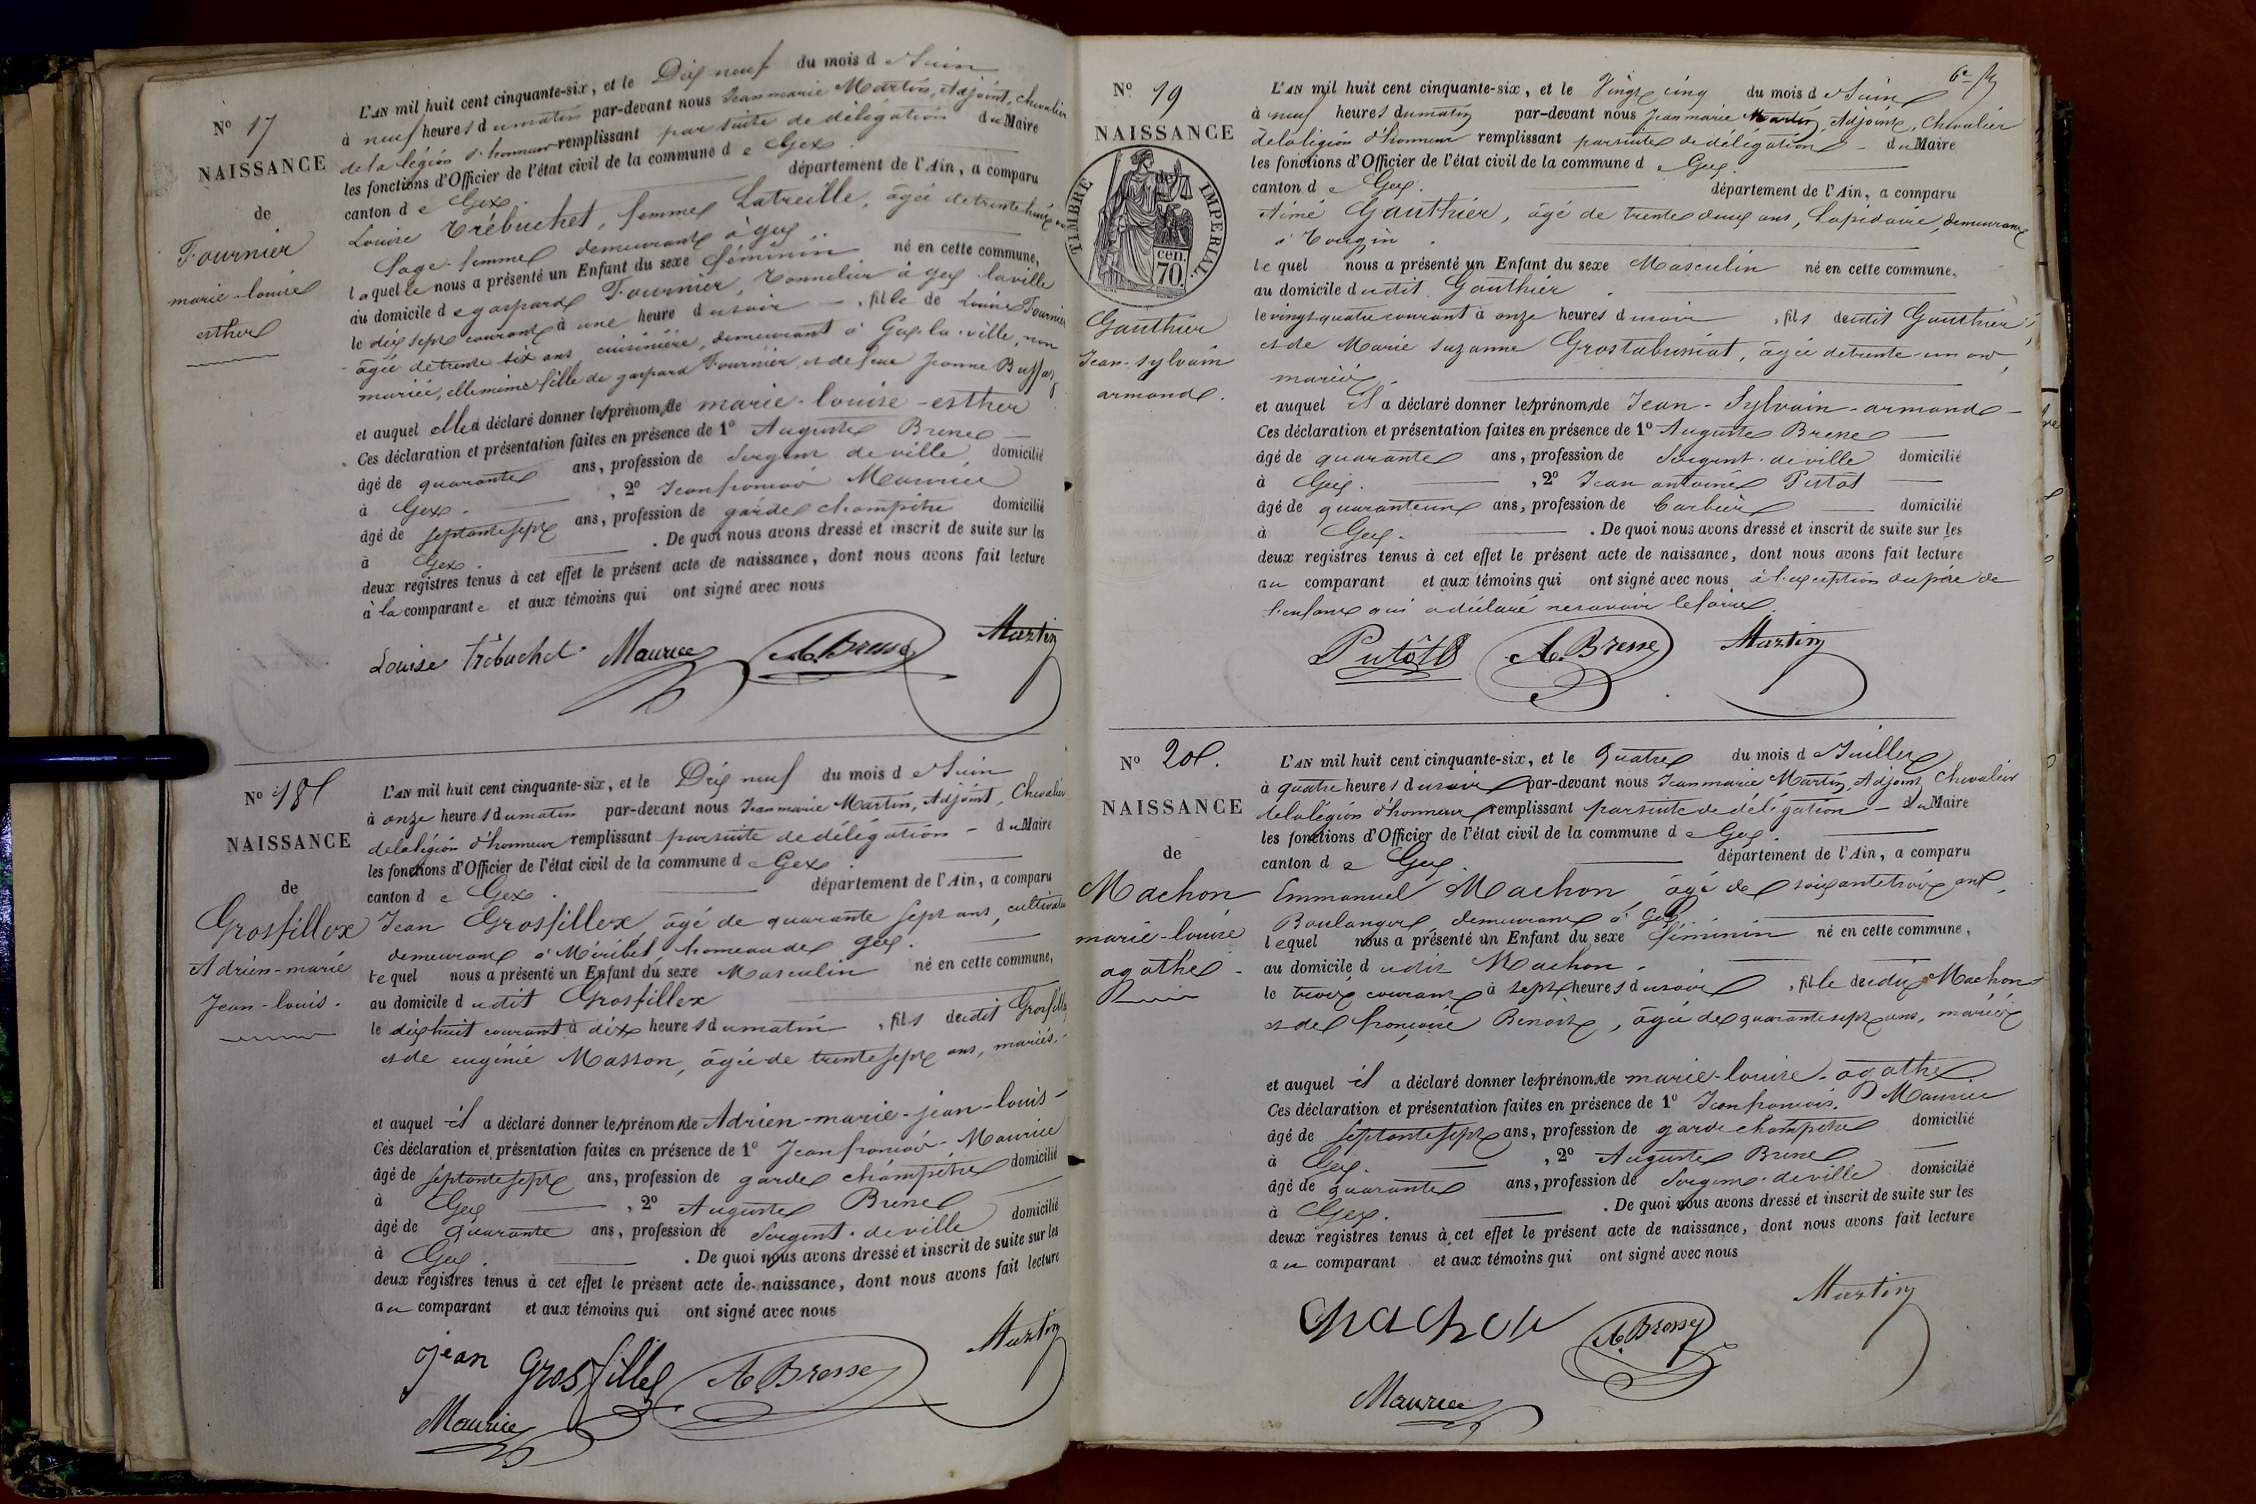 N° 17
NAISSANCE
de
Fournier
marie-louise
esther
L'AN mil huit cent cinquante-six, et le Dix neuf du mois de Juin
à neuf heures du matin par-devant nous Jean marie Martin, Adjoint, chevalier
de la légion d'honneur remplissant par suite de délégation du Maire
les fonctions d'Officier de l'état civil de la commune de Gex.
canton de Gex. département de l'Ain, a comparu
Louise Trébuchet, femme Latreille, âgée de trente huit ans
Sage-femme demeurant à Gex.
laquelle nous a présenté un Enfant du sexe féminin né en cette commune,
au domicile de gaspard Fournier, tonnelier à Gex la ville
le dix sept courant à une heure du soir, fille de Louise Fournier
âgée de trente six ans cuisinière, demeurant à Gex-la-ville, non
mariée, elle même fille de gaspard Fournier et de feue Jeanne Buffaz
et auquel elle a déclaré donner les prénoms de marie-louise-esther
Ces déclaration et présentation faites en présence de 1° Auguste Bresse
âgé de quarante ans, profession de Sergent de ville, domicilié
à Gex. , 2° Jean françois Maurice
âgé de septante sept ans, profession de garde champêtre domicilié
à Gex. . De quoi nous avons dressé et inscrit de suite sur les
deux registres tenus à cet effet le présent acte de naissance, dont nous avons fait lecture
à la comparante et aux témoins qui ont signé avec nous
Louise trébuchet Maurice A. Bresse Martin
N° 18
NAISSANCE
de
Grosfillex
Adrien-marie
Jean-louis.
L'AN mil huit cent cinquante-six, et le Dix neuf du mois de Juin
à onze heures du matin par-devant nous Jean marie Martin, Adjoint, Chevalier
de la légion d'honneur remplissant par suite de délégation du Maire
les fonctions d'Officier de l'état civil de la commune de Gex
canton de Gex. département de l'Ain, a comparu
Jean Grosfillex âgé de quarante sept ans, cultivateur
demeurant à Miribel, hameau de Gex.
lequel nous a présenté un Enfant du sexe Masculin né en cette commune,
au domicile dudit Grosfillex
le dix huit courant à dix heures du matin, fils dudit Grosfillex
et de eugénie Masson, âgée de trente sept ans, mariés.
et auquel il a déclaré donner les prénoms de Adrien-marie-jean-louis-
Ces déclaration et présentation faites en présence de 1° Jean françois Maurice
âgé de septante sept ans, profession de garde champêtre domicilié
à Gex , 2° Auguste Bresse
âgé de quarante ans, profession de Sergent de ville domicilié
à Gex. . De quoi nous avons dressé et inscrit de suite sur les
deux registres tenus à cet effet le présent acte de naissance, dont nous avons fait lecture
au comparant et aux témoins qui ont signé avec nous
jean Grosfillex A. Bresse Martin
Maurice
6e
N° 19
NAISSANCE
TIMBRE IMPERIAL
70 cen.
Gauthier
Jean-sylvain
armand.
L'AN mil huit cent cinquante-six, et le Vingt cinq du mois de Juin
à neuf heures du matin par-devant nous Jean marie Martin, Adjoint, Chevalier
de la légion d'honneur remplissant par suite de délégation du Maire
les fonctions d'Officier de l'état civil de la commune de Gex.
canton de Gex. département de l'Ain, a comparu
Aimé Gauthier, âgé de trente deux ans, Lapidaire, demeurant
à Tougin.
lequel nous a présenté un Enfant du sexe Masculin né en cette commune,
au domicile dudit Gauthier.
le vingt quatre courant à onze heures du soir, fils dudit Gauthier
et de Marie suzanne Grostabussiat, âgée de trente-un ans,
mariés.
et auquel il a déclaré donner les prénoms de Jean-Sylvain-armand-
Ces déclaration et présentation faites en présence de 1° Auguste Bresse
âgé de quarante ans, profession de Sergent de ville domicilié
à Gex. , 2° Jean antoine Putod
âgé de quarante un ans, profession de barbier domicilié
à Gex. . De quoi nous avons dressé et inscrit de suite sur les
deux registres tenus à cet effet le présent acte de naissance, dont nous avons fait lecture
au comparant et aux témoins qui ont signé avec nous à l'exception du père de
l'enfant qui a déclaré ne savoir le faire.
Putod A. Bresse Martin
N° 20.
NAISSANCE
de
Machon
marie-louise
agathe
L'AN mil huit cent cinquante-six, et le Quatre du mois de Juillet
à quatre heures du soir par-devant nous Jean marie Martin, Adjoint, Chevalier
de la légion d'honneur remplissant par suite de délégation du Maire
les fonctions d'Officier de l'état civil de la commune de Gex.
canton de Gex. département de l'Ain, a comparu
Emmanuel Machon, âgé de soixante trois ans,
Boulanger, demeurant à Gex.
lequel nous a présenté un Enfant du sexe féminin né en cette commune,
au domicile dudit Machon.
le trois courant à sept heures du soir, fille dudit Machon
et de françoise Benoit, âgée de quarante sept ans, mariés
et auquel il a déclaré donner les prénoms de marie-louise-agathe
Ces déclaration et présentation faites en présence de 1° Jean françois Maurice
âgé de septante sept ans, profession de garde champêtre domicilié
à Gex. , 2° Auguste Bresse
âgé de quarante ans, profession de Sergent de ville domicilié
à Gex. . De quoi nous avons dressé et inscrit de suite sur les
deux registres tenus à cet effet le présent acte de naissance, dont nous avons fait lecture
au comparant et aux témoins qui ont signé avec nous
Machon A. Bresse Martin
Maurice